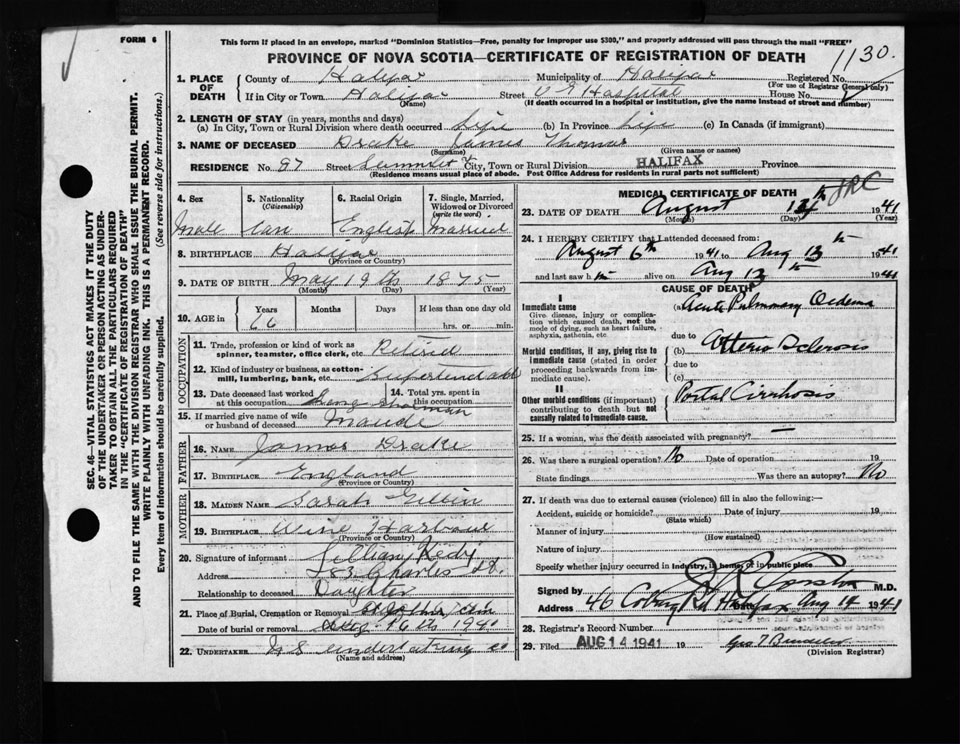 FORM 6
This form if placed in an envelope, marked "Dominion Statistics—Free, penalty for improper use $300," and properly addressed will pass through the mail "FREE"
PROVINCE OF NOVA SCOTIA—CERTIFICATE OF REGISTRATION OF DEATH
1130
1. PLACE OF DEATH County of Halifax Municipality of Halifax Registered No.
(For use of Registrar General only)
If in City or Town Halifax Street V G Hospital House No.
(Name) (If death occurred in a hospital or institution, give the name instead of street and number)
2. LENGTH OF STAY (in years, months and days)
(a) In City, Town or Rural Division where death occurred Life (b) In Province Life (c) In Canada (if immigrant)
3. NAME OF DECEASED Drake James Thomas
(Surname) (Given name or names)
RESIDENCE No. 87 Street City, Town or Rural Division HALIFAX Province
(Residence means usual place of abode. Post Office Address for residents in rural parts not sufficient)
4. Sex
Male
5. Nationality
(Citizenship)
Can
6. Racial Origin
English
7. Single, Married, Widowed or Divorced
(write the word)
Married
8. BIRTHPLACE Halifax
(Province or Country)
9. DATE OF BIRTH May 19th 1875
(Month) (Day) (Year)
10. AGE in Years Months Days If less than one day
66 hrs. or min.
OCCUPATION
11. Trade, profession or kind of work as spinner, teamster, office clerk, etc. Retired
12. Kind of industry or business, as cotton-mill, lumbering, bank, etc.
13. Date deceased last worked at this occupation
14. Total yrs. spent in this occupation
15. If married give name of wife or husband of deceased Maude
FATHER
16. NAME James Drake
17. BIRTHPLACE England
(Province or Country)
MOTHER
18. MAIDEN NAME Sarah
19. BIRTHPLACE Wine Harbour
(Province or Country)
20. Signature of informant Lillian
Address 83 Charles St.
Relationship to deceased Daughter
21. Place of Burial, Cremation or Removal
Date of burial or removal Aug 16th 1941
22. UNDERTAKER N S Undertaking Co
(Name and address)
MEDICAL CERTIFICATE OF DEATH
23. DATE OF DEATH August 13th 1941
(Month) (Day) (Year)
24. I HEREBY CERTIFY that I attended deceased from:
August 6th 1941 to Aug 13th 1941
and last saw h alive on Aug 13th 1941
CAUSE OF DEATH
I
Immediate cause
Give disease, injury or complication which caused death, not the mode of dying, such as heart failure, asphyxia, asthenia, etc.
Acute Pulmonary Oedema
due to
Morbid conditions, if any, giving rise to immediate cause (stated in order proceeding backwards from immediate cause).
(b)
due to
(c)
II
Other morbid conditions (if important) contributing to death but not causally related to immediate cause.
Portal Cirrhosis
25. If a woman, was the death associated with pregnancy? —
26. Was there a surgical operation? No Date of operation 19
State findings Was there an autopsy? No
27. If death was due to external causes (violence) fill in also the following:—
Accident, suicide or homicide? Date of injury 19
(State which)
Manner of injury
(How sustained)
Nature of injury
Specify whether injury occurred in industry, in home, or in public place
Signed by M.D.
Address 46 Halifax Aug 14 1941
28. Registrar's Record Number
29. Filed AUG 14 1941 19
(Division Registrar)
SEC. 46—VITAL STATISTICS ACT MAKES IT THE DUTY
OF THE UNDERTAKER OR PERSON ACTING AS UNDER-
TAKER TO OBTAIN ALL THE PARTICULARS REQUIRED
IN THE "CERTIFICATE OF REGISTRATION OF DEATH"
AND TO FILE THE SAME WITH THE DIVISION REGISTRAR WHO SHALL ISSUE THE BURIAL PERMIT.
WRITE PLAINLY WITH UNFADING INK. THIS IS A PERMANENT RECORD.
Every item of information should be carefully supplied. (See reverse side for instructions.)